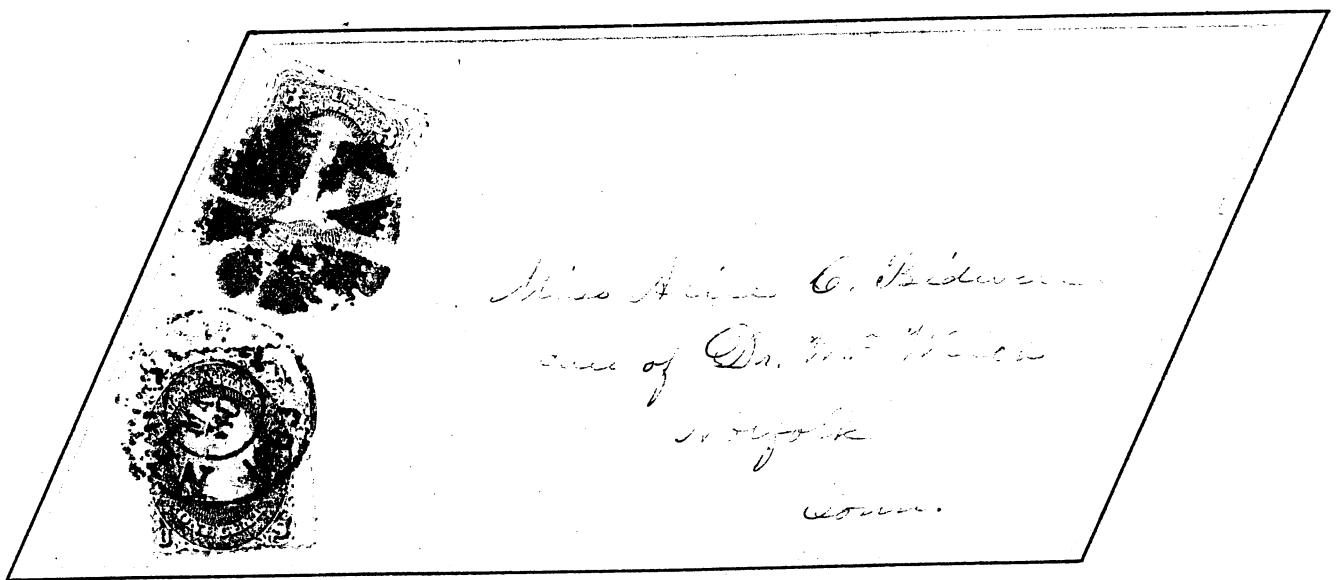 Miss Alice C. Bidwell
care of Dr. Wm Welch
Norfolk
Conn.